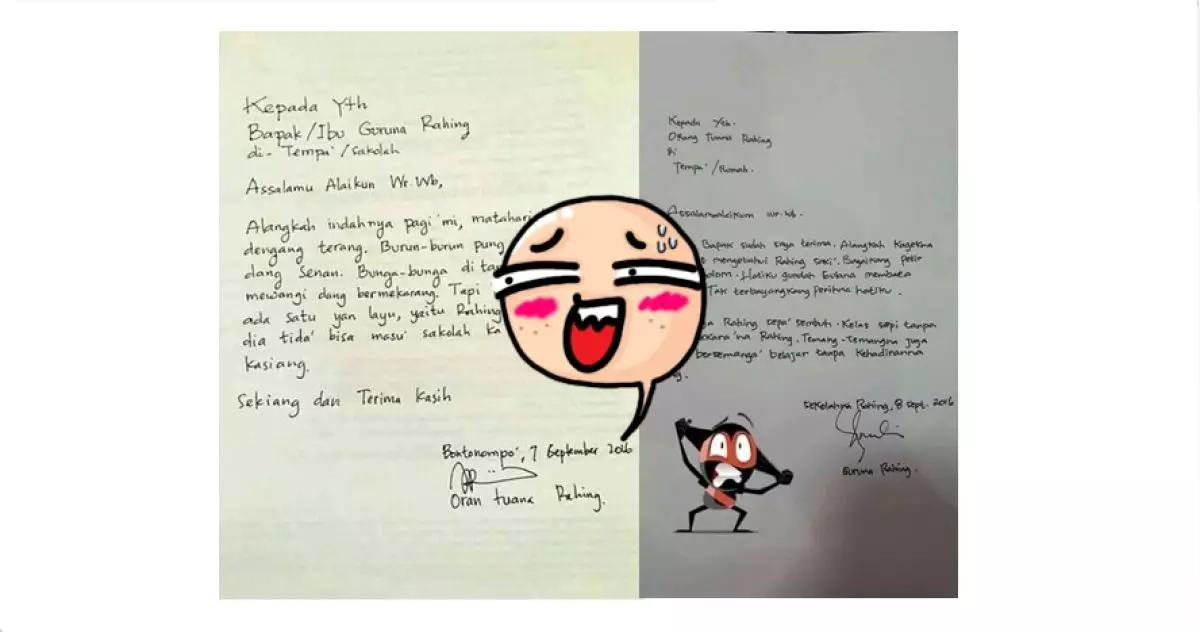 Kepada Yth
Bapak/Ibu Guruna Rahing
di- Tempa'/sakolah
Assalamu Alaikun Wr. Wb,
Alangkah indahnya pagi'mi, matahari
dengang terang. Burun-burun pung
dang Senan. Bunga-bunga di
mewangi dang bermekarang. Tapi
ada satu yan layu, yaitu Rahing
dia tida' bisa masu' sakolah ka
kasiang.
Sekiang dan Terima kasih
Bontonompo', 7 September 2016
Oran tuana Rahing.
Kepada Yth.
Orang Tuana Rahing
di
Tempa'/Rumah.
Assalamualaikum wr. wb.
Bapak sudah saya terima. Alangkah kagetna
mengetahui Rahing saki'. Bagaikang petir
Hatiku gundah gulana membaca
Tak terbayangkang perihna hatiku.
Rahing cepa' sembuh. Kelas sepi tanpa
Rahing. Temang-temangna juga
bersemanga' belajar tanpa kehadiranna
sekolahna Rahing, 8 sept. 2016
Guruna Rahing.